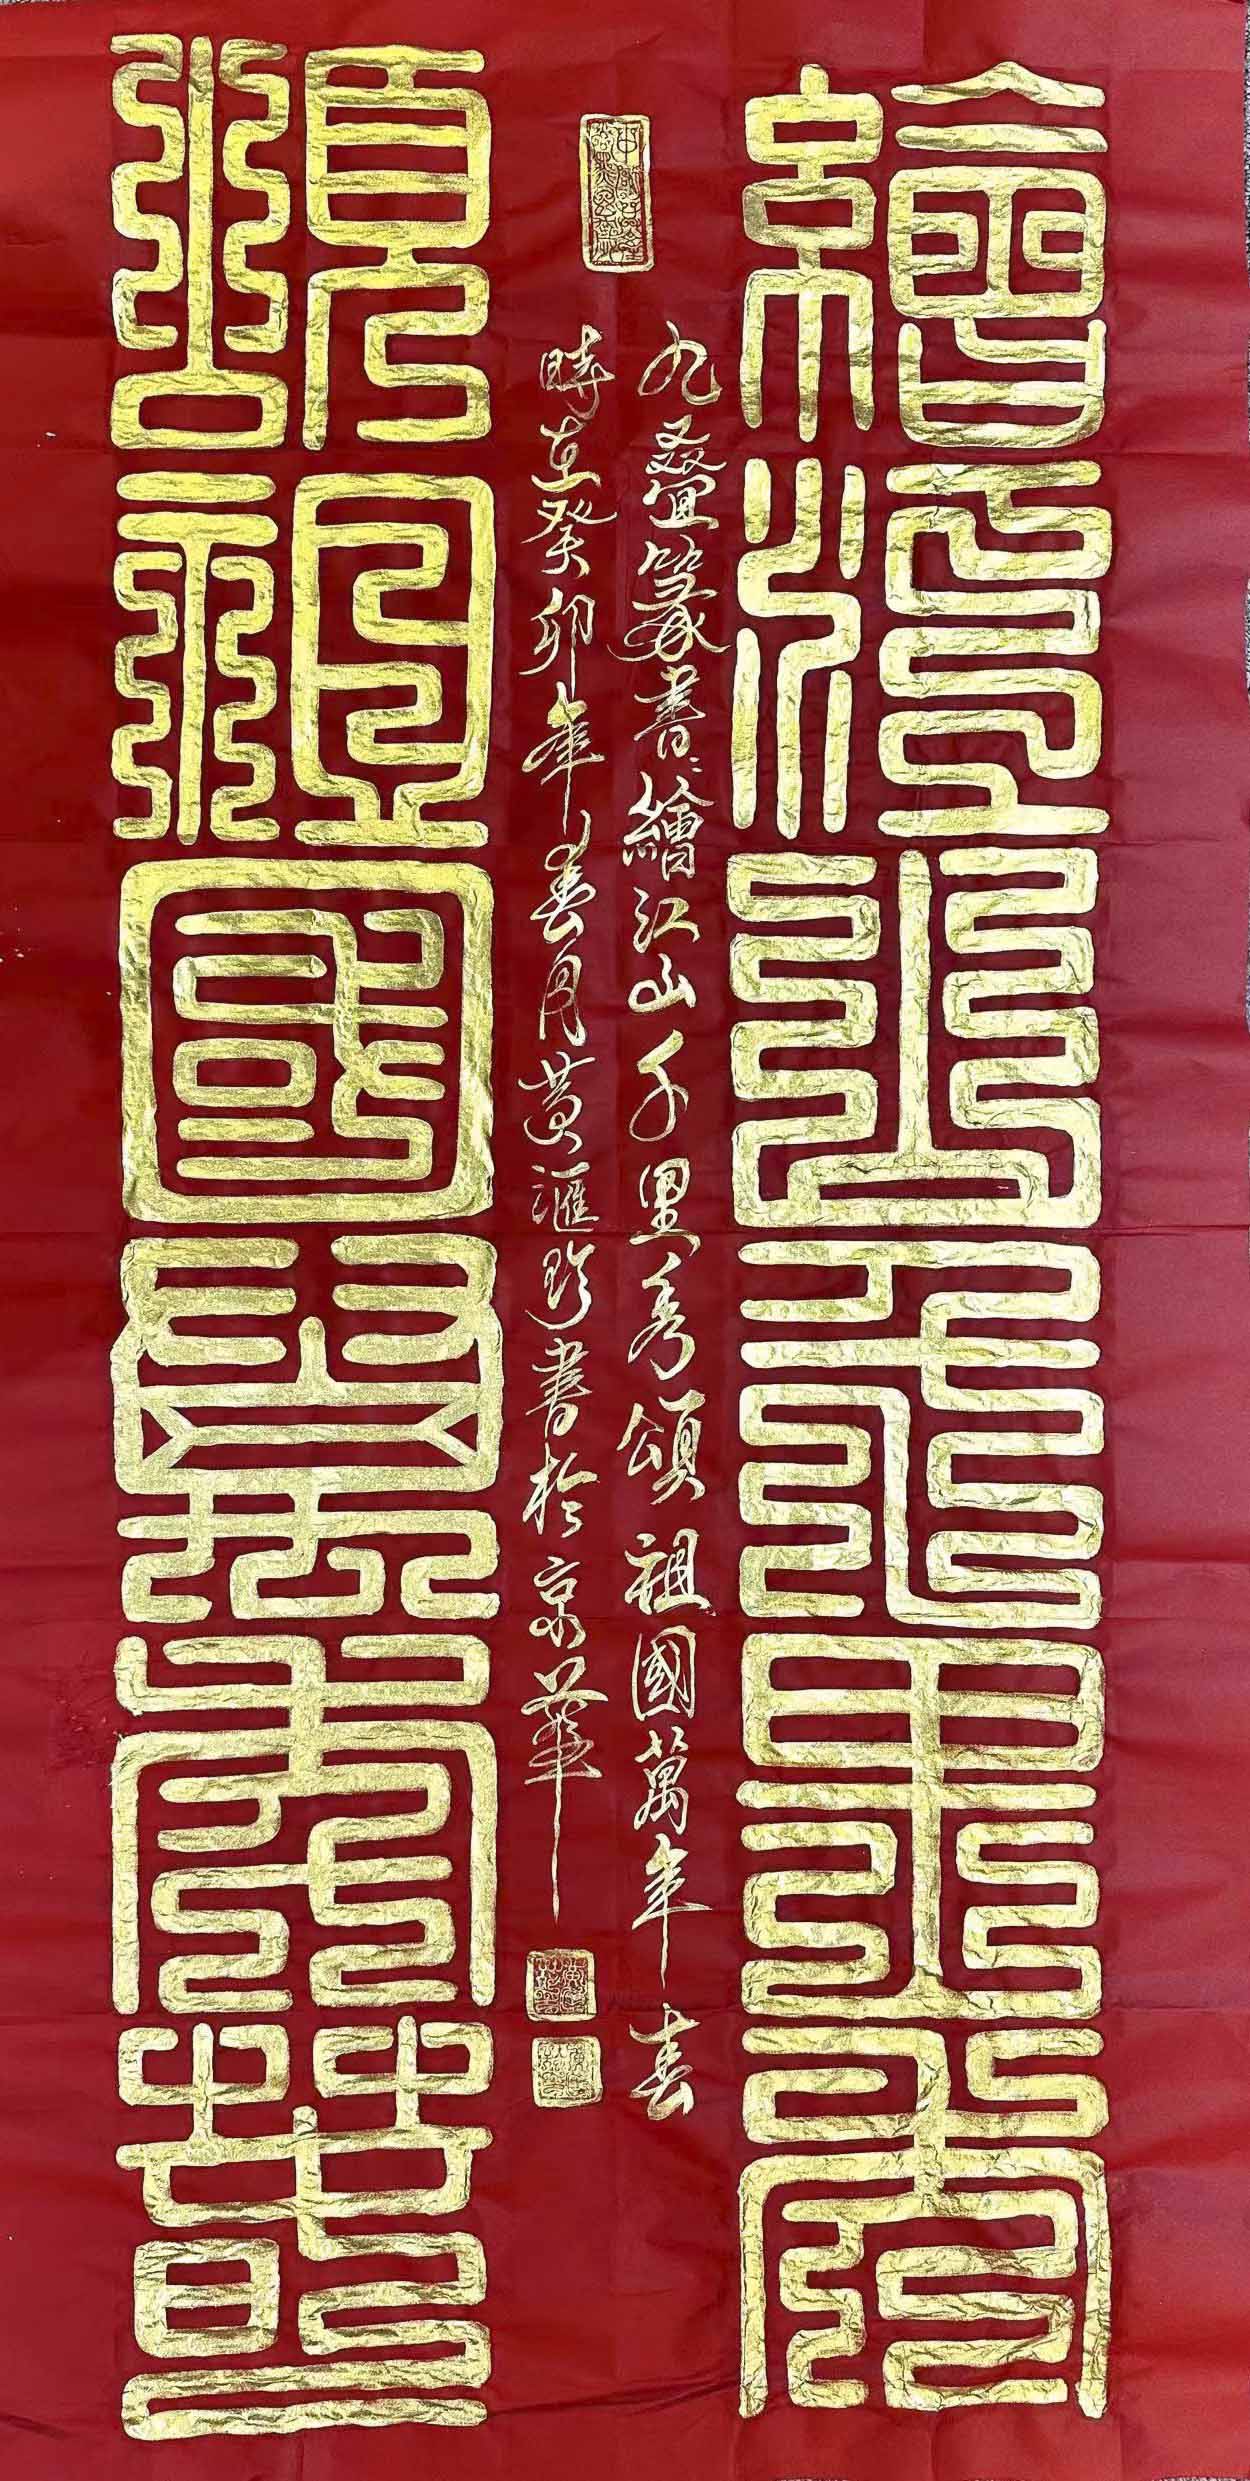 繪江山千里秀
九叠篆書：繪江山千里秀頌祖國萬年春
時在癸卯年春月黃滙珍書於京華
頌祖國萬年春